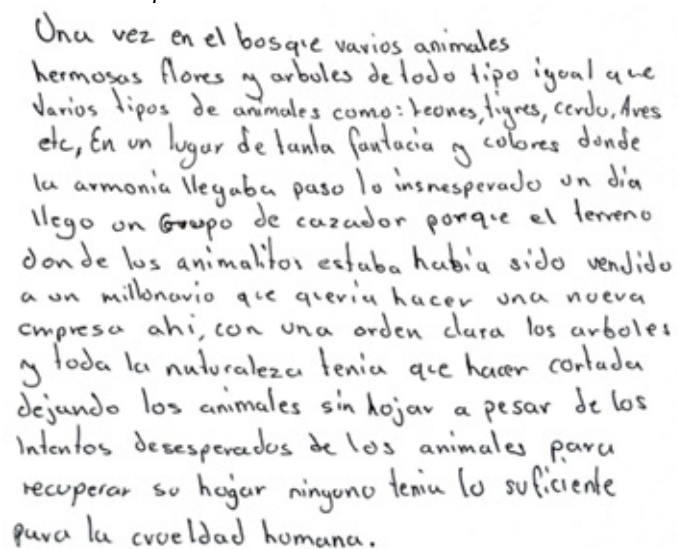 Una vez en el bosque varios animales
hermosas flores y arboles de todo tipo igual que
varios tipos de animales como: Leones, tigres, cerdo, Aves
etc, En un lugar de tanta fantacia y colores donde
la armonia llegaba paso lo insnesperado un día
llego un Grupo de cazador porque el terreno
donde los animalitos estaba había sido vendido
a un millonario que queria hacer una nueva
empresa ahi, con una orden clara los arboles
y toda la naturaleza tenia que hacer cortada
dejando los animales sin hojar a pesar de los
Intentos desesperados de los animales para
recuperar su hogar ninguno tenia lo suficiente
para la crueldad humana.